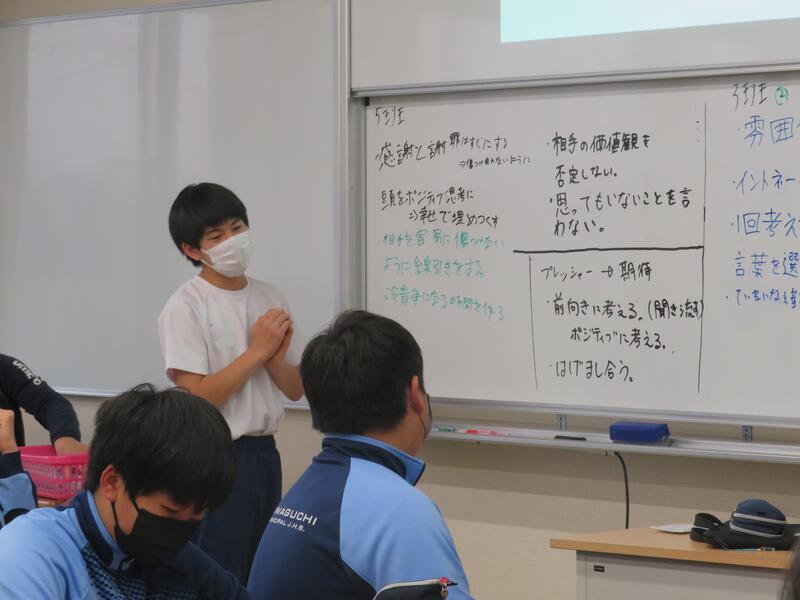 5班
感謝と謝罪はすぐにする
⇒傷つけ合わないように
頭をポジティブ思考に
⇒幸せで埋めつくす
相手を容易に傷つけない
ように線引きをする。
冷静になる時間を作る
・相手の価値観を
否定しない。
・思ってもいないことを言
わない。
プレッシャー → 期待
・前向きに考える。(聞き流す)
ポジティブに考える。
・はげまし合う。
3班 ②
・雰囲
・イントネー
・1回考え
言葉を選
・ていねいな
WAGUCHI
CIPAL J.H.S.